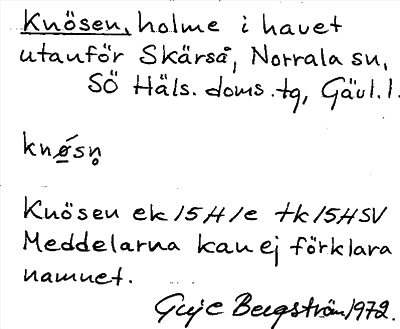 Knösen, holme i havet
utanför Skärså, Norrala sn,
SÖ Häls. doms. tg, Gävl. l.
knǿ̱sn̥
Knösen ek 15H1e tk 15HSV
Meddelarna kan ej förklara
namnet.
Bergström 1972.